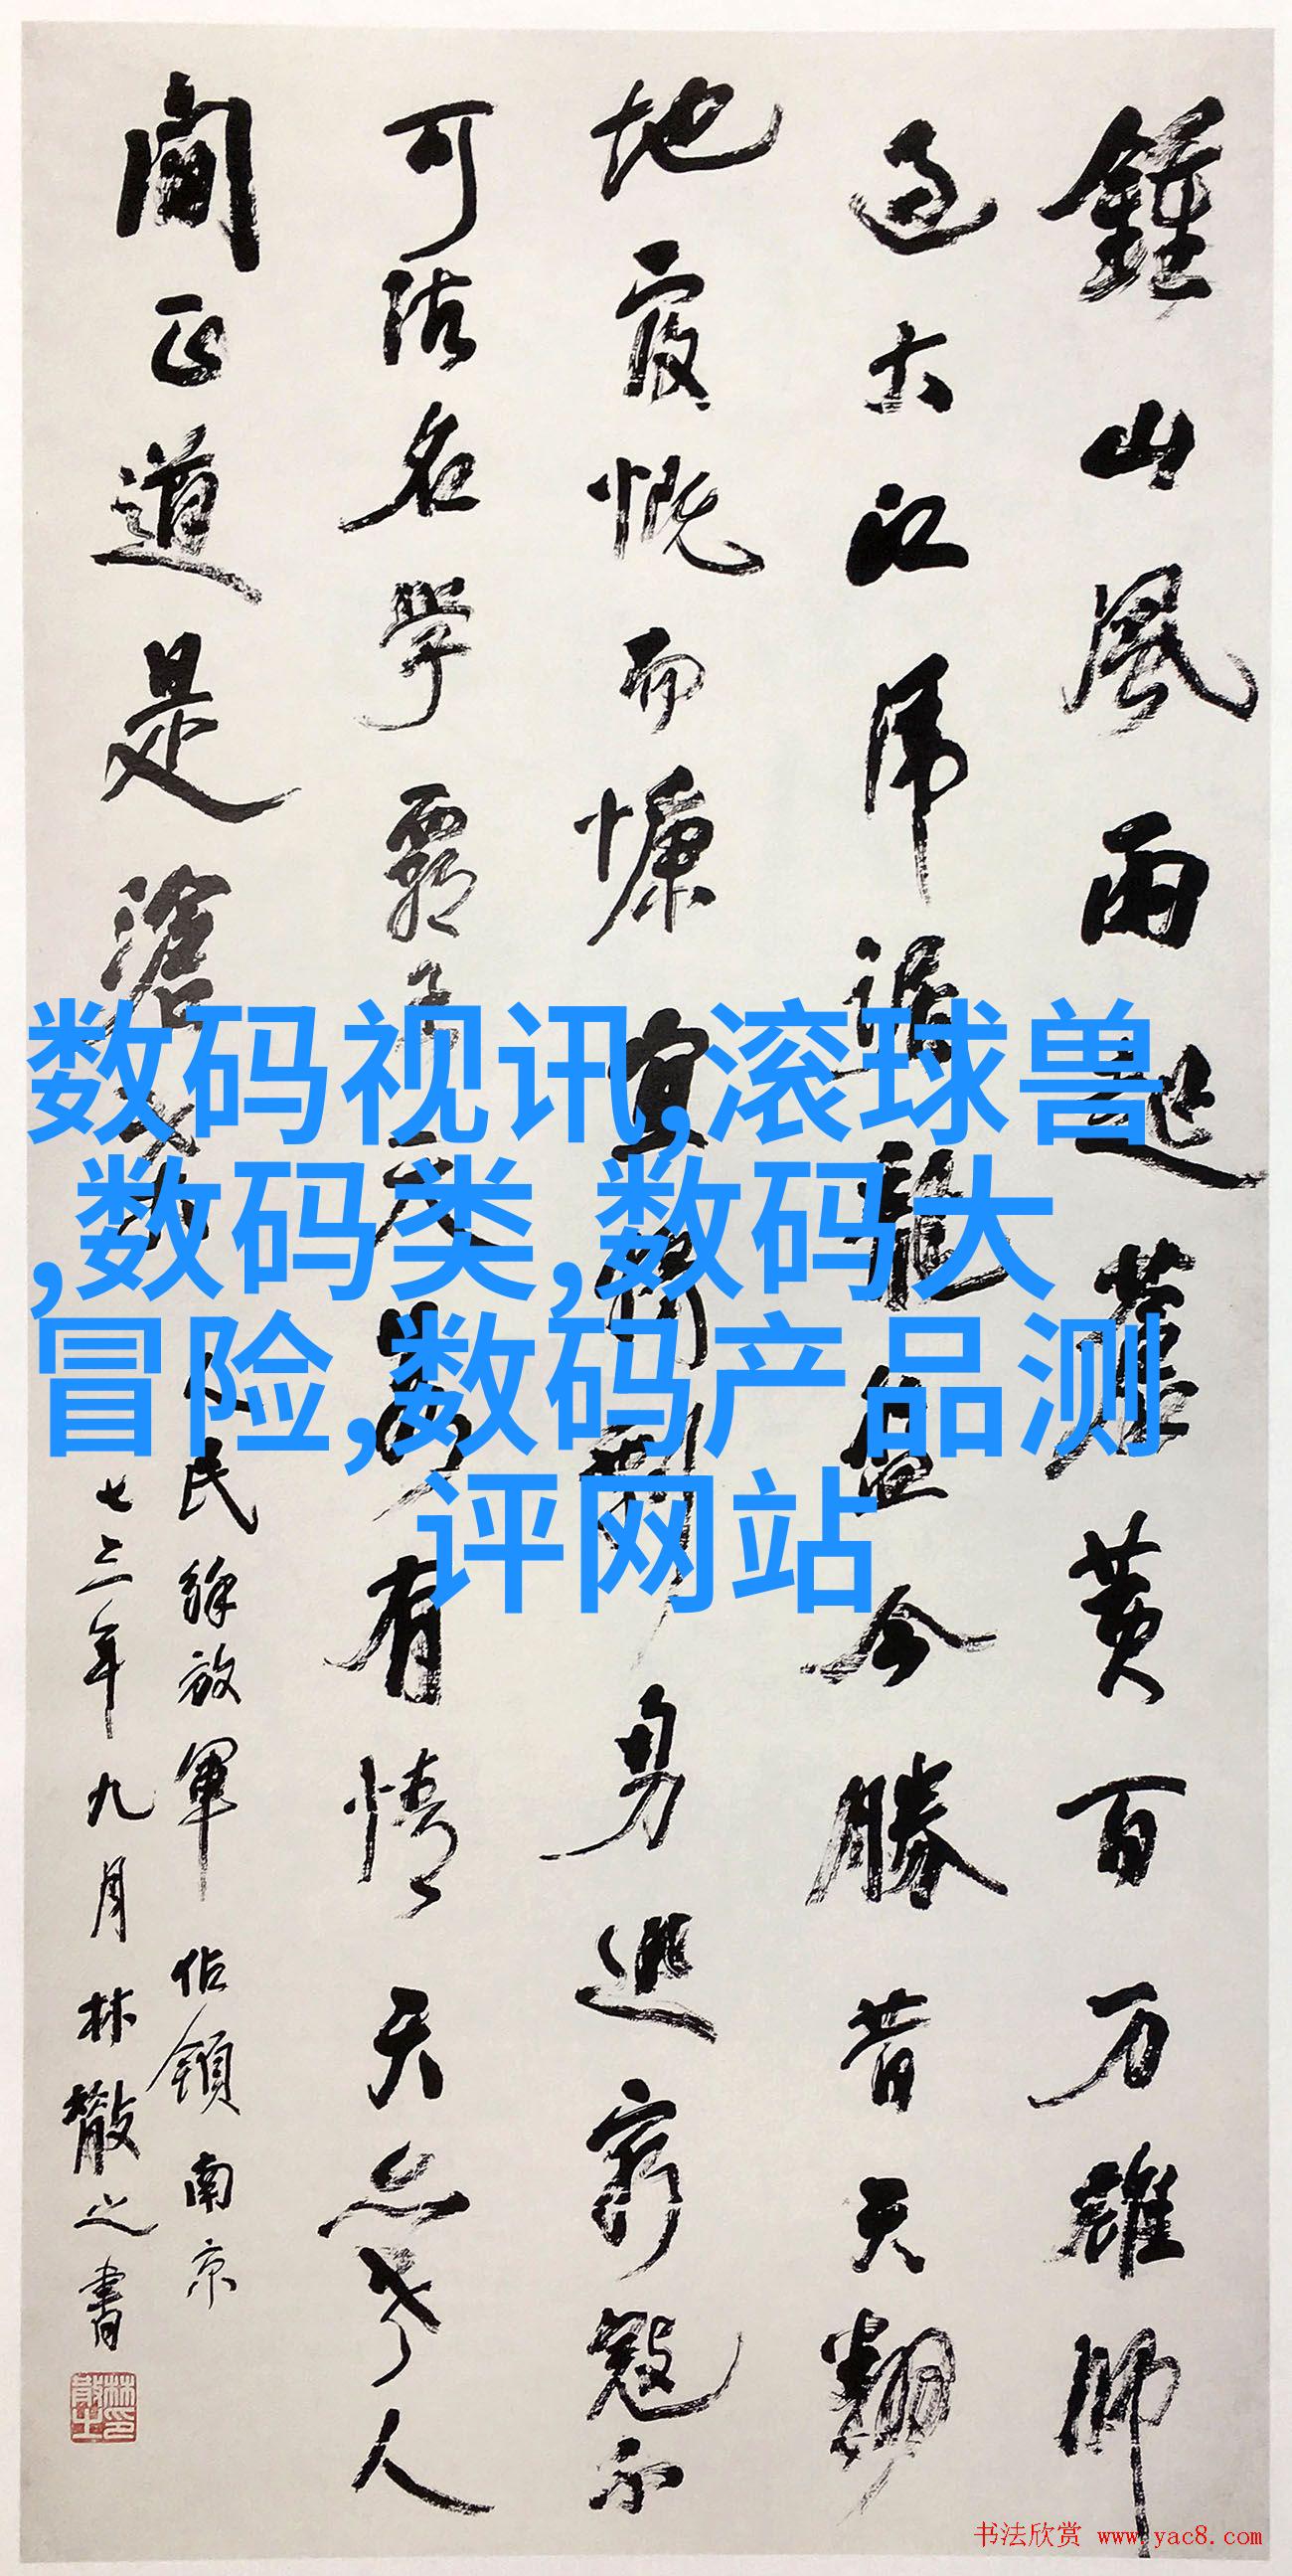 鍾山風雨起蒼黄百万雄師
过大江虎踞龍盘今勝昔天翻
地覆慨而慷宜將剩勇追窮寇不
可沽名學霸王天若有情天亦老人
间正道是滄桑
人民解放軍佔領南京
七三年九月林散之書
林散之印
数码视讯,滚球兽
,数码类,数码大
冒险,数码产品测
评网站
书法欣赏 www.yac8.com